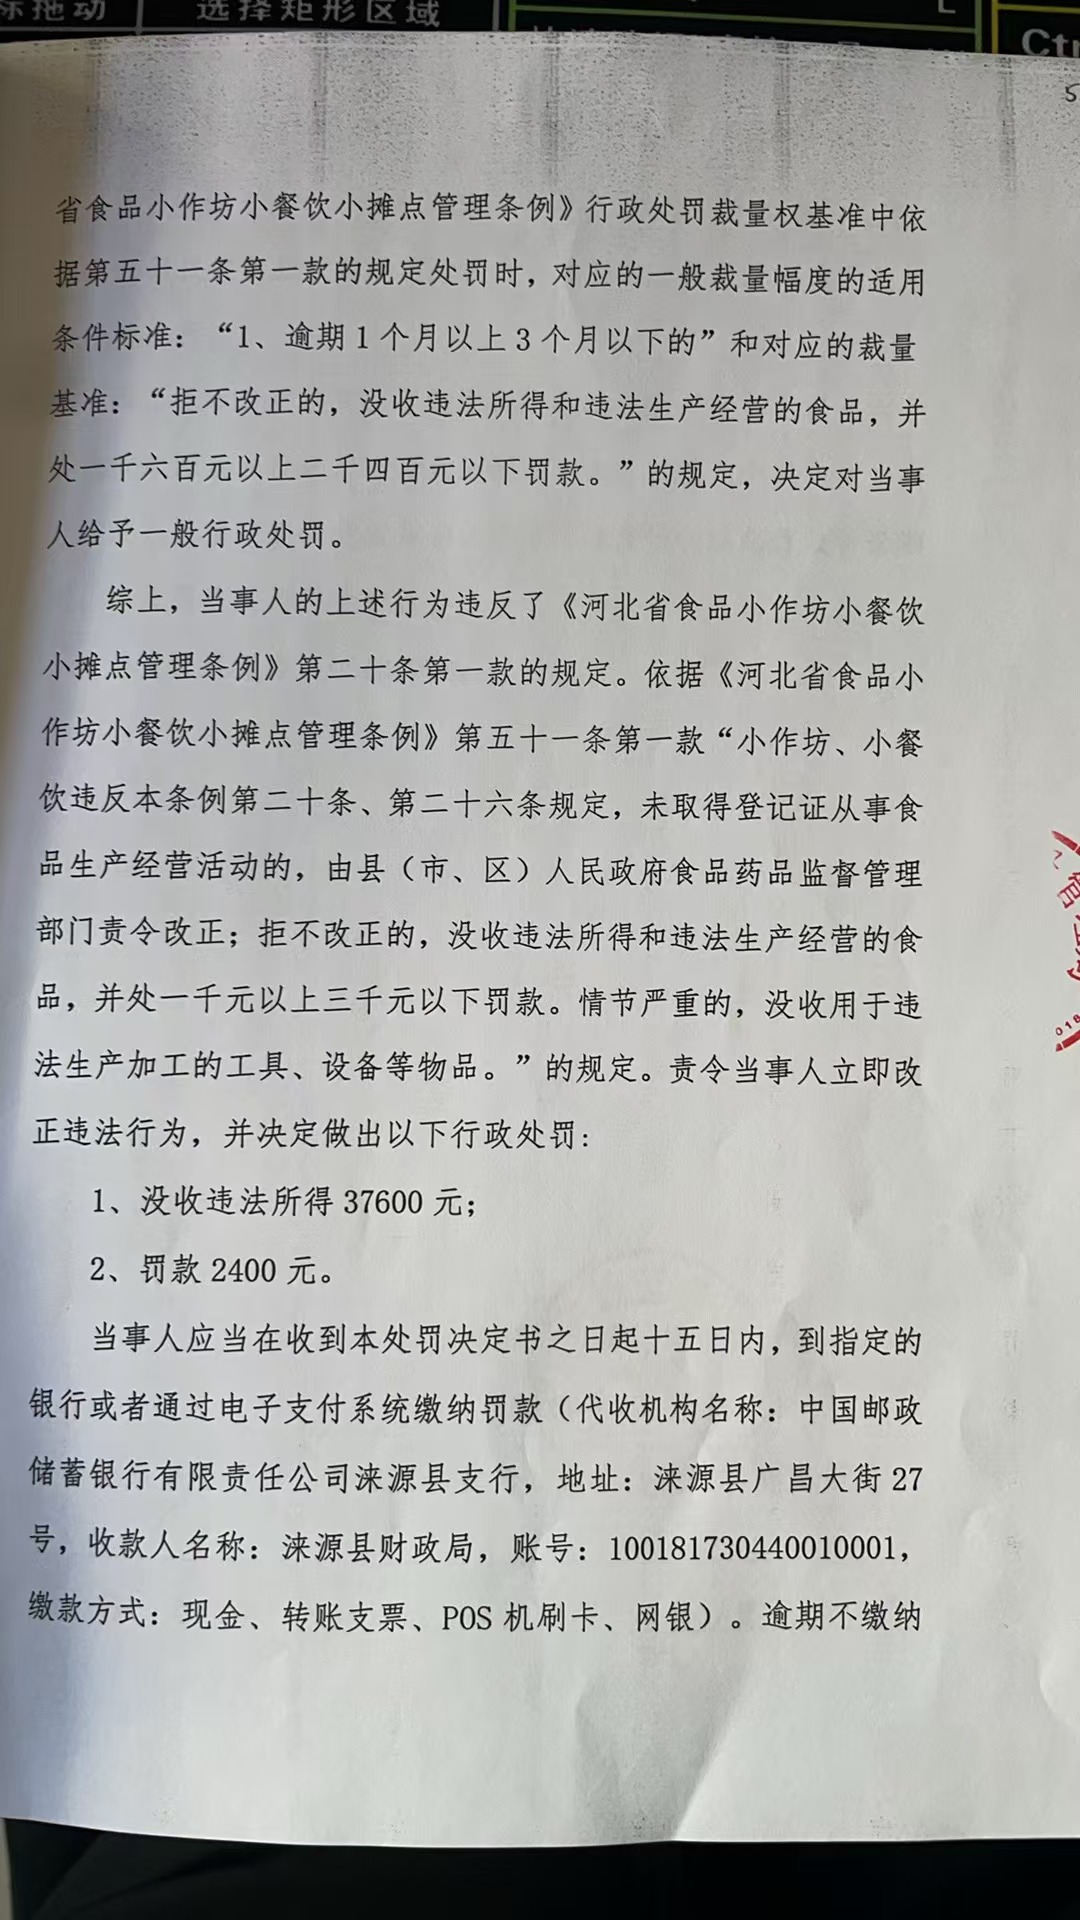 标拖动
选择矩形区域
L
Ctr
5
省食品小作坊小餐饮小摊点管理条例》行政处罚裁量权基准中依
据第五十一条第一款的规定处罚时，对应的一般裁量幅度的适用
条件标准：“1、逾期1个月以上3个月以下的”和对应的裁量
基准：“拒不改正的，没收违法所得和违法生产经营的食品，并
处一千六百元以上二千四百元以下罚款。”的规定，决定对当事
人给予一般行政处罚。
综上，当事人的上述行为违反了《河北省食品小作坊小餐饮
小摊点管理条例》第二十条第一款的规定。依据《河北省食品小
作坊小餐饮小摊点管理条例》第五十一条第一款“小作坊、小餐
饮违反本条例第二十条、第二十六条规定，未取得登记证从事食
品生产经营活动的，由县（市、区）人民政府食品药品监督管理
部门责令改正；拒不改正的，没收违法所得和违法生产经营的食
品，并处一千元以上三千元以下罚款。情节严重的，没收用于违
法生产加工的工具、设备等物品。”的规定。责令当事人立即改
正违法行为，并决定做出以下行政处罚：
1、没收违法所得37600元；
2、罚款2400元。
当事人应当在收到本处罚决定书之日起十五日内，到指定的
银行或者通过电子支付系统缴纳罚款（代收机构名称：中国邮政
储蓄银行有限责任公司涞源县支行，地址：涞源县广昌大街27
号，收款人名称：涞源县财政局，账号：100181730440010001，
缴款方式：现金、转账支票、POS机刷卡、网银）。逾期不缴纳
018